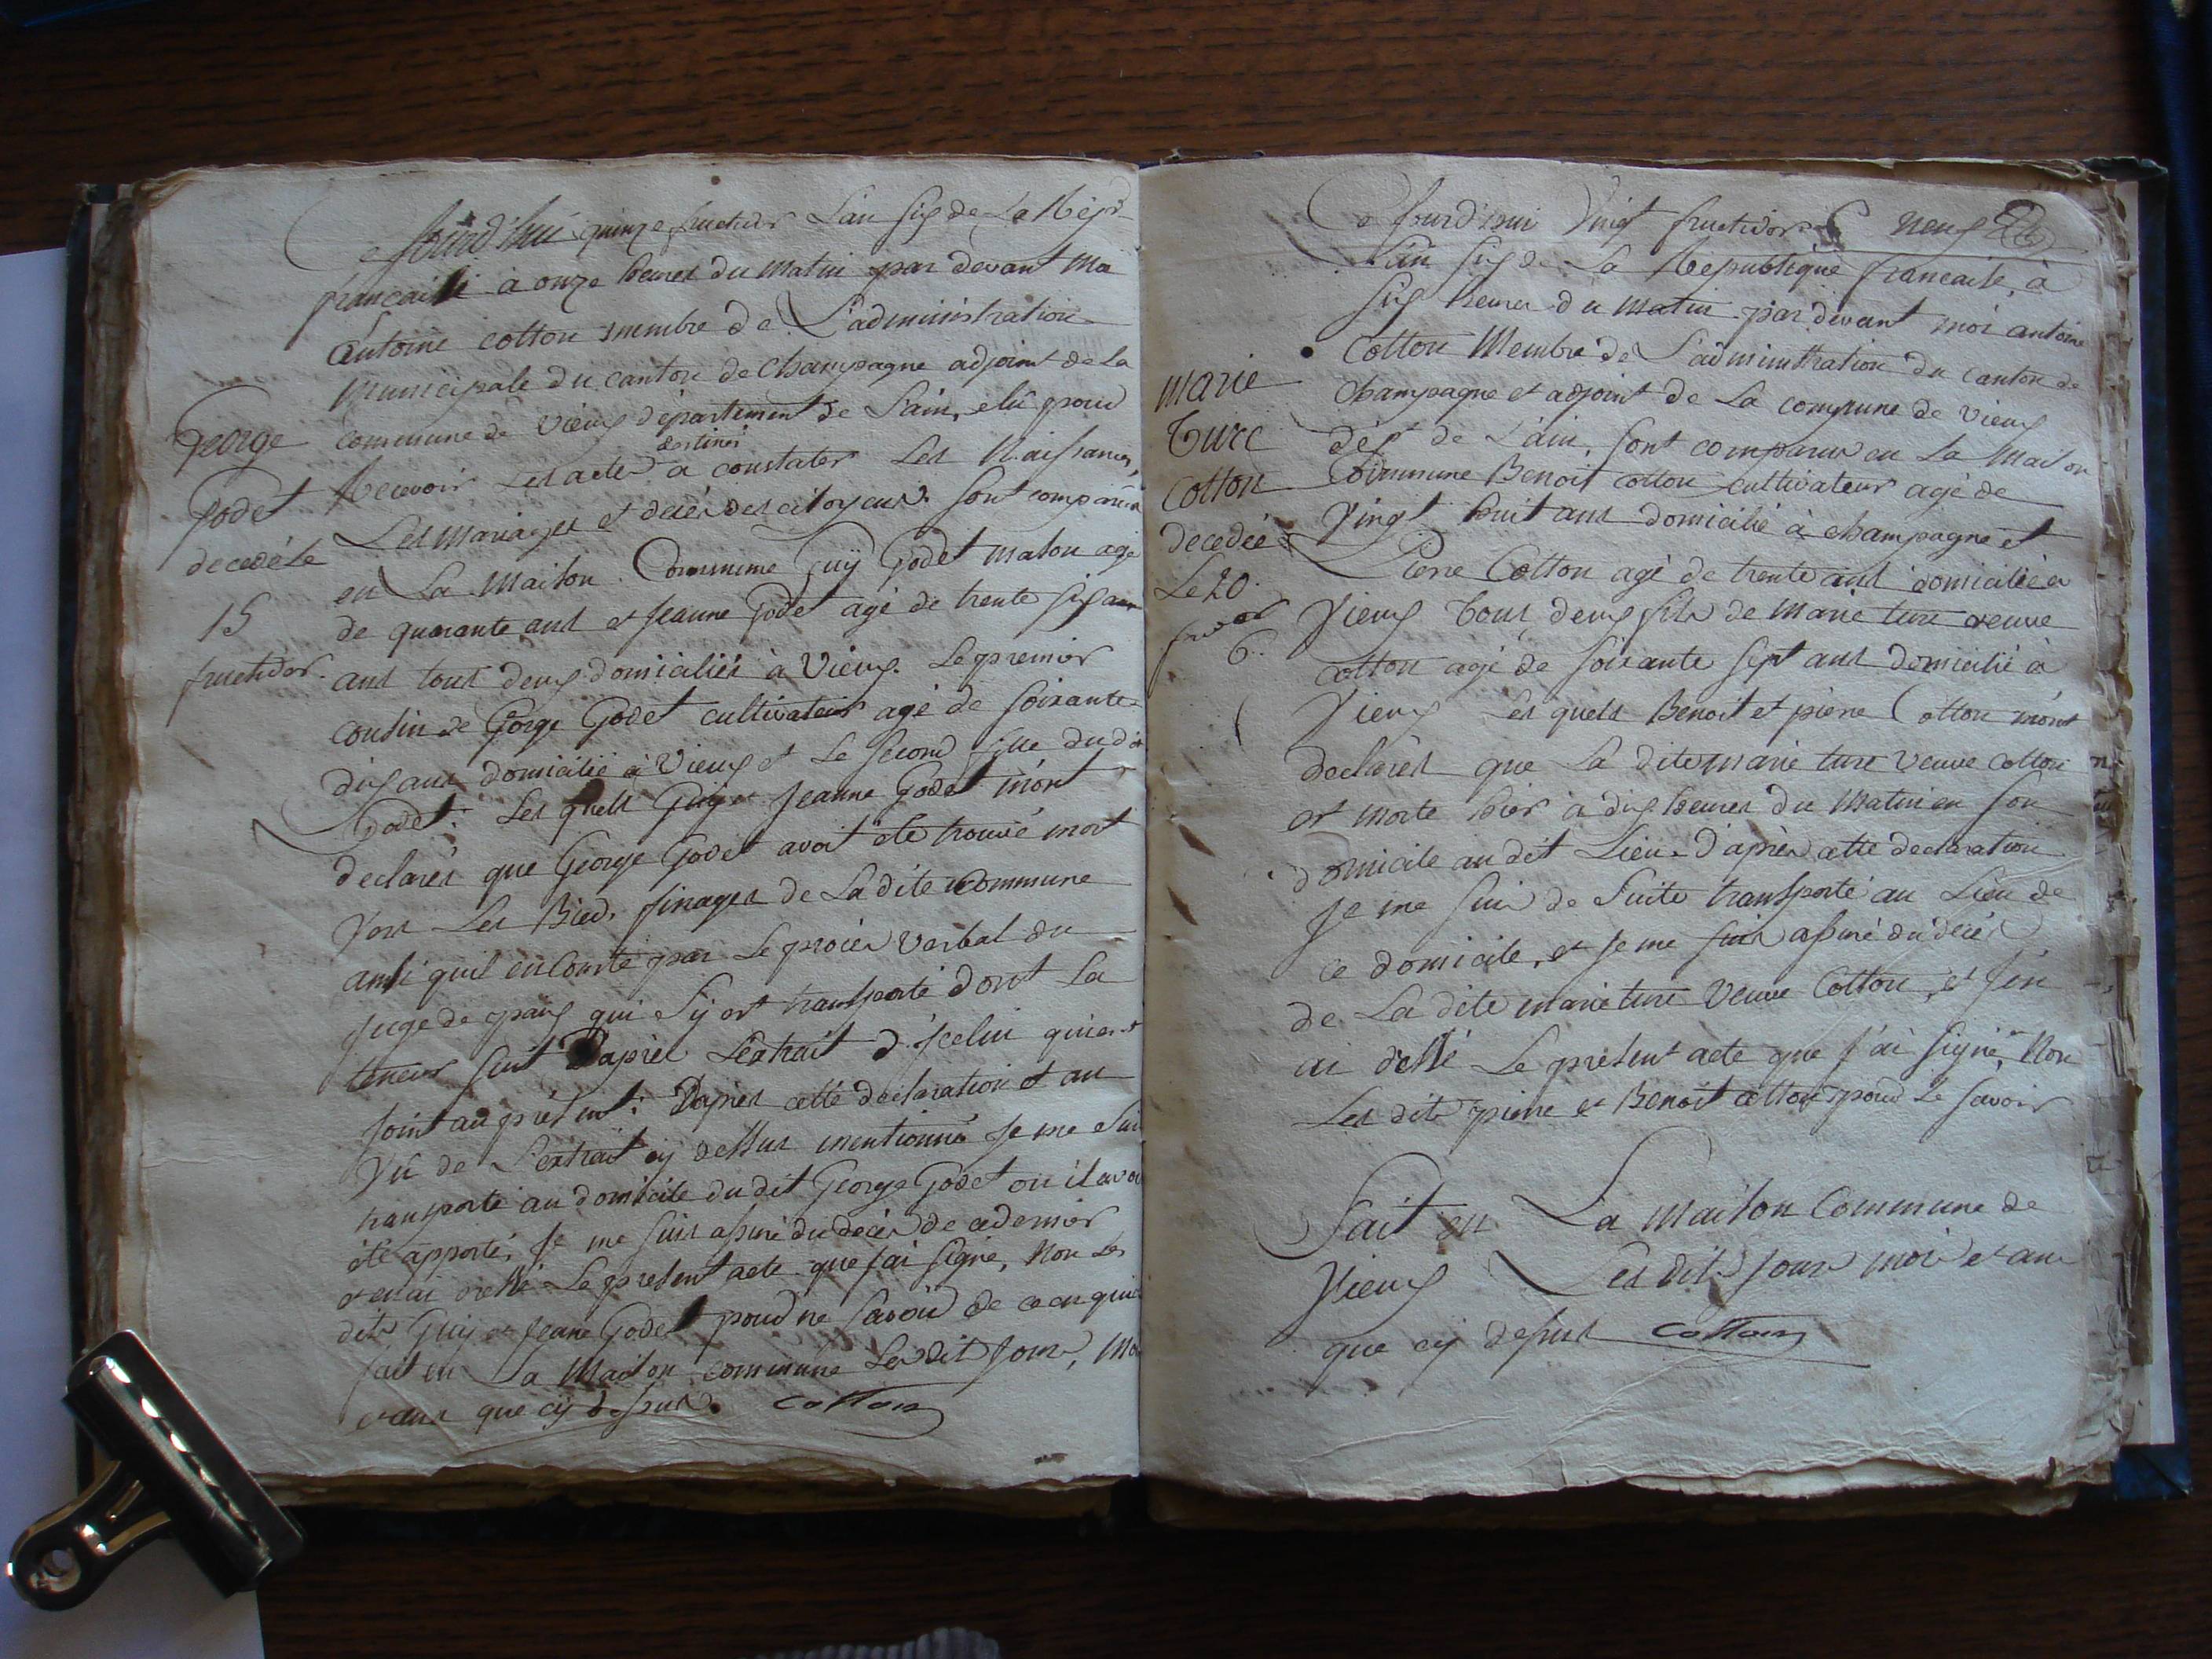 Ce Jourd'hui quinze fructidor L'an six de La Rép
francaise à onze heures du matin par devant Ma
Antoine cotton membre de L'administration
Municipale du canton de Champagne adjoint de la
commune de Vieux département de L'ain, elû pour
destinés
Recevoir Les actes a constater Les Naissances,
Les Mariages et décés des citoyens. Sont comparus
en La Maison Commune Guÿ Godet mason agé
de quarante ans et Jeanne Godet agé de trente six ans
ans tous deux domiciliés à Vieux. Le premier
cousin de George Godet cultivateur agé de soixante
dix ans domicilié à Vieux et Le second fille dudit
Godet. Les quels Guÿ et Jeanne Godet m'ont
declarés que George Godet avoit été trouvé mort
vers Les Bied, finages de La dite Commune
ansi quil en conste par Le procés verbal du
Juge de paix qui s'ÿ est transporté dont La
teneur suit D'apres L'extrait d'Jcelui qui est
Joint au présent. D'apres cette declaration et au
Vû de L'extrait cÿ dessus mentionné Je me suis
transporté au domicile du dit George Godet ou il avoi
été apporté, Je me suis assuré du decés de ce dernier
et en ai dressé Le present acte que J'ai signé, Non Les
dits Guÿ et Jeane Godet pour ne savoir de ce enquis
fait en La Maison commune Les dit Jour, Mois
et ans que cÿ dessus. Cotton
George
Godet
decedé le
15
fructidor.
Ce Jourd'hui Vingt fructidor neuf
L'an six de La République francaise, à
six heures du matin par devant moi antoine
Cotton Membre de L'administration du canton de
Champagne et adjoint de La commune de Vieux
dépt de L'ain, sont comparus en La Maison
Commune Benoit cotton cultivateur agé de
Vingt huit ans domicilié à champagne et
Pierre Cotton agé de trente ans domicilié a
Vieux tous deux fils de Marie turc veuve
cotton agé de soixante sept ans domicilié à
Vieux Les quels Benoit et pierre Cotton m'ont
declarés que La dite marie turc veuve cotton
est morte hier à dix heures du Matin en son
domicile au dit Lieu. D'apres cette declaration
Je me suis de suite transporté au Lieu de
ce domicile, et Je me suis assuré du décés
de La dite marie turc Veuve Cotton, et J'en
ai dressé Le present acte que J'ai signé, Non
Les dits pierre et Benoit cotton pour Le savoir
Fait en La Maison Commune de
Vieux Les dits Jour mois et an
que cÿ dessus Cotton
Marie
Turc
Cotton
decedée
Le 20.
6.